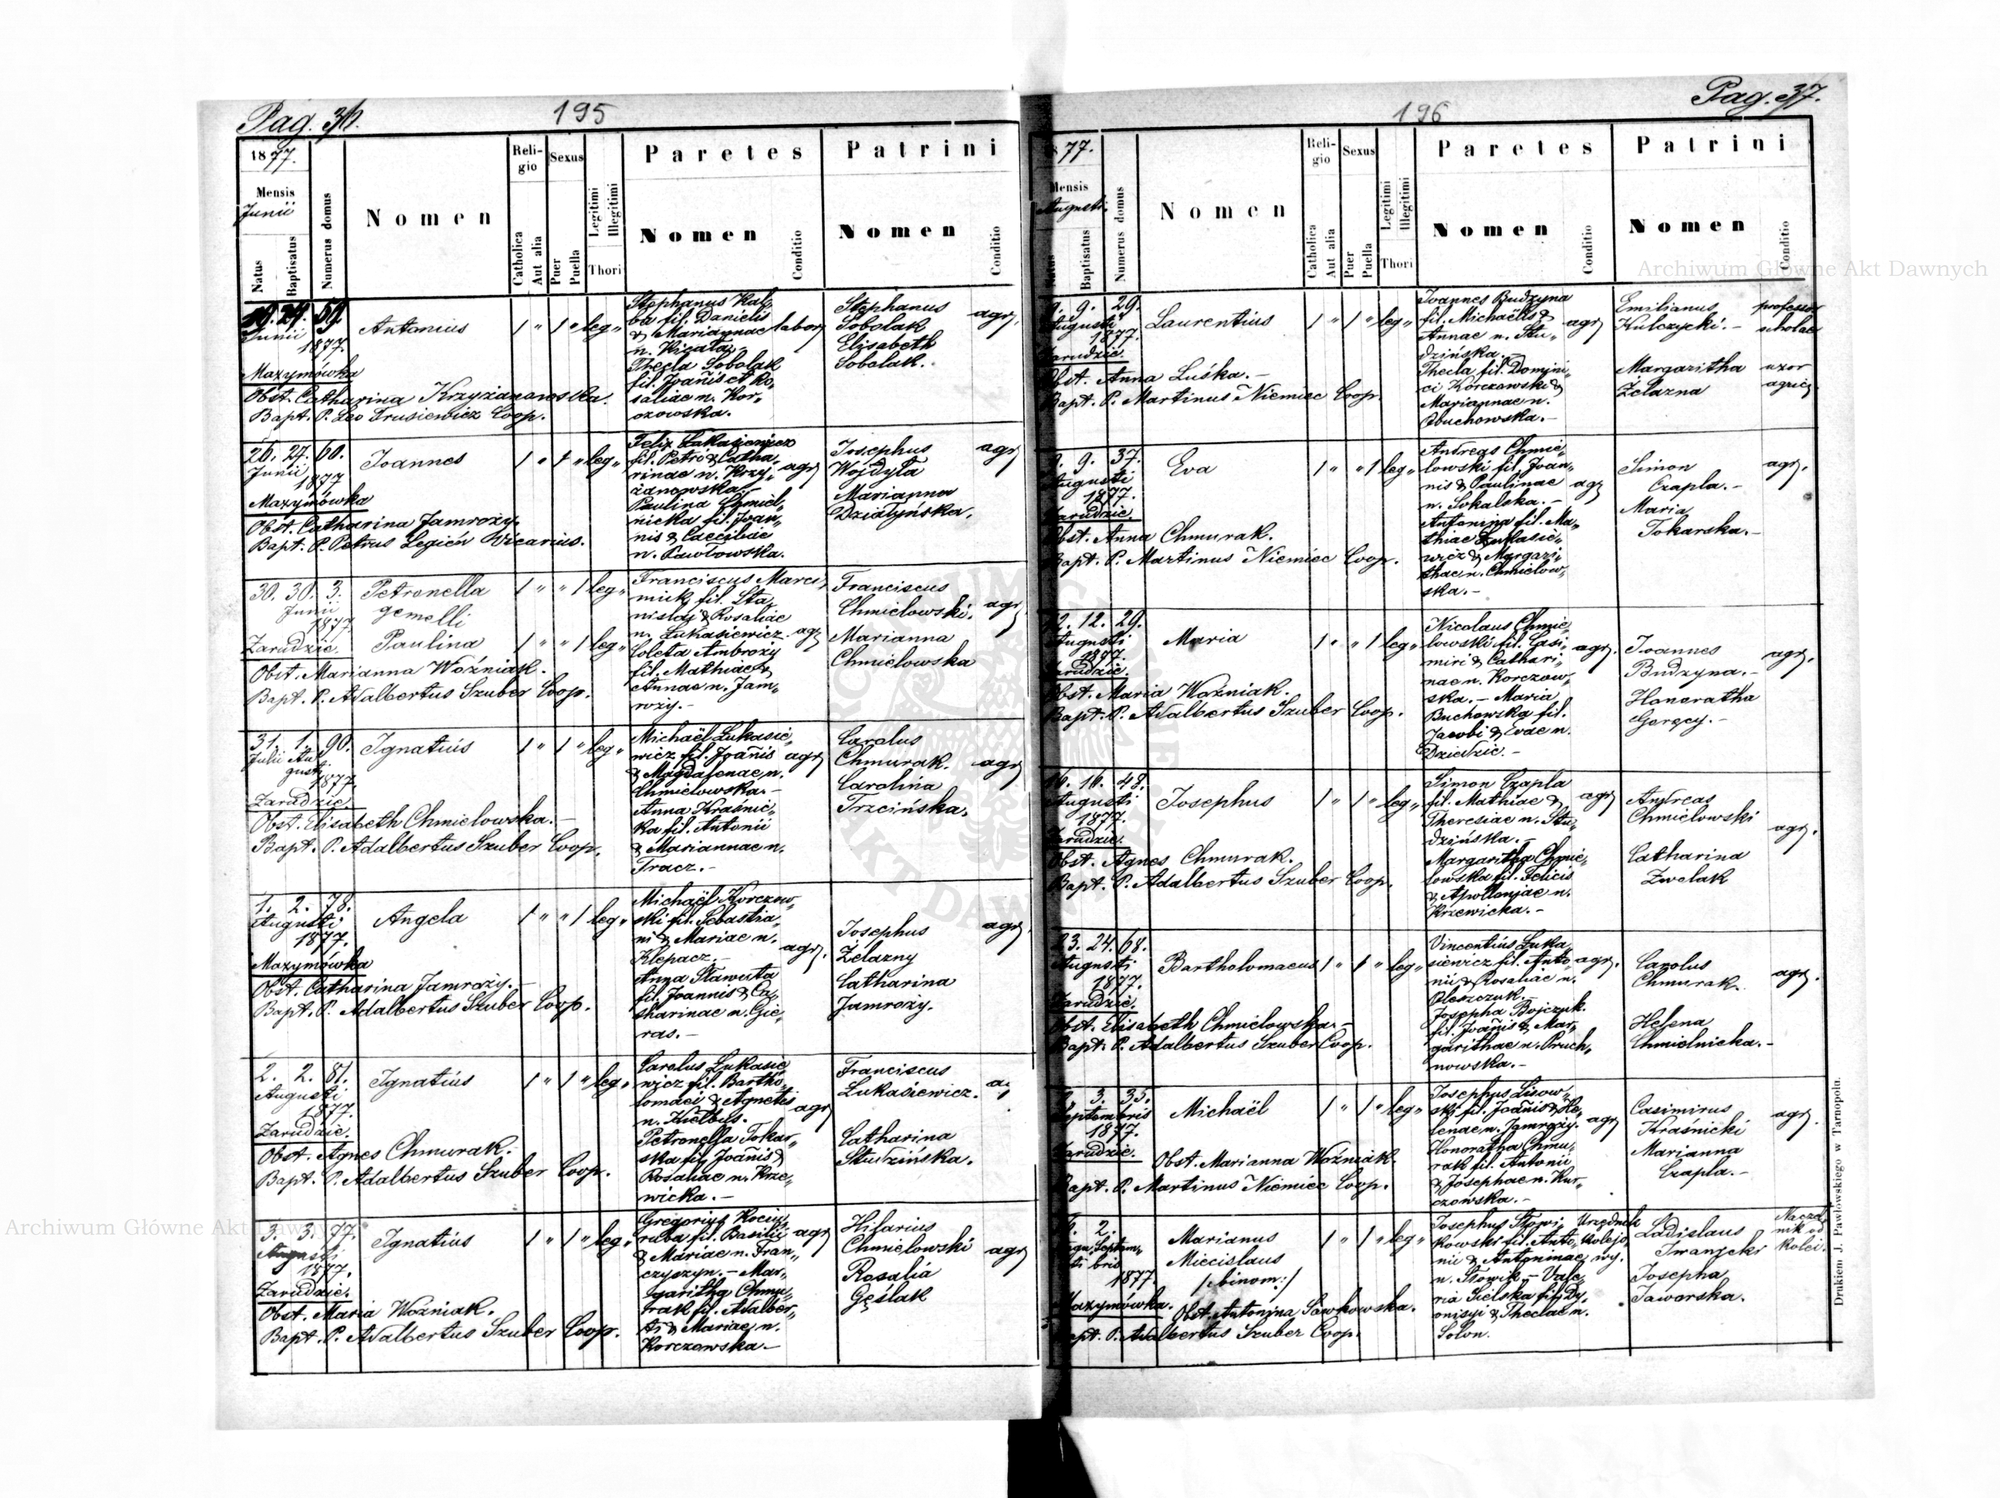 Pag. 36.
195
1877.
Mensis
Junii
Natus
Baptisatus
Numerus domus
Nomen
Religio
Catholica
Aut alia
Sexus
Puer
Puella
Legitimi
Illegitimi
Thori
Paretes
Nomen
Conditio
Patrini
Nomen
Conditio
19. 24. 59.
Junii
1877.
Mazymówka
Antonius
1 " 1 " leg "
Stephanus Kal-
ba fil. Danielis
& Mariannae
labor
Thecla Sobolak
fil. Joañis et Ro-
saliae n. Kor-
czowska.
Stephanus
Sobolak
Elisabeth
Sobolak.
agr.
Obst. Catharina Krzyżanowska.
Bapt. P. Leo Trusiewicz Coop.
26. 27. 60.
Junii
1877
Mazymówka
Joannes
1 " 1 " leg "
Felix Łukasiewicz
fil. Petri & Catha-
rinae n. Krzy-
żanowska.-
agr
Paulina Chmiel-
nicka fil. Joan-
nis & Caeciliae
n. Pawłowska.
Josephus
Wojdyła
Marianna
Działyńska.
agr
Obst. Catharina Jamroży.
Bapt. P. Petrus Legień Vicarius.
30. 30. 3.
Junii
1877
Zarudzie.
Petronella
gemelli
Paulina
1 " " 1 leg "
1 " " 1 leg "
Franciscus Marci-
niuk fil. Sta-
nislai & Rosaliae
n. Łukasiewicz.
agr
fil. Mathiae &
Annae n. Jam-
roży.-
Franciscus
Chmielowski.
Marianna
Chmielowska
agr
Obst. Marianna Woźniak.
Bapt. P. Adalbertus Szuber Coop.
31. 1. 90.
Julii Au-
gusti
1877.
Zarudzie
Ignatius
1 " 1 " leg "
Michaël Łukasie-
wicz fil. Joañis
& Magdalenae n.
Chmielowska.-
agr
Anna Kraśnic-
ka fil. Antonii
& Mariannae n.
Tracz.-
Carolus
Chmurak.
Carolina
Trzcińska.
agr
Obst. Elisabeth Chmielowska.-
Bapt. P. Adalbertus Szuber Coop.
1. 2. 78.
Augusti
1877.
Mazymówka
Angela
1 " " 1 leg "
Michaël Korczow-
ski fil. Sebastia-
ni & Mariae n.
Klepacz.-
agr.
Anna Stawuta
fil. Joannis & Ca-
tharinae n. Gie-
ras.-
Josephus
Żelazny
Catharina
Jamroży.
agr
Obst. Catharina Jamroży.-
Bapt. P. Adalbertus Szuber Coop.
2. 2. 81.
Augusti
1877.
Zarudzie.
Ignatius
1 " 1 " leg "
Carolus Łukasie-
wicz fil. Bartho-
lomaei & Agnetis
n. Kiełbus.
agr
Petronella Tokar-
ska fil. Joañis &
Rosaliae n. Krze-
wicka.-
Franciscus
Łukasiewicz.
Catharina
Studzińska.
Obst. Agnes Chmurak.
Bapt. P. Adalbertus Szuber Coop.
3. 3. 77.
Augusti
1877.
Zarudzie.
Ignatius
1 " 1 " leg "
Gregorius Kociu-
ruba fil. Basilii
& Mariae n. Fran-
czyszyn.- Mar-
garitha Chmu-
rak fil. Adalber-
ti & Mariae n.
Korczowska.-
agr
Hilarius
Chmielowski
Rosalia
Gęślak
agr
Obst. Maria Woźniak.
Bapt. P. Adalbertus Szuber Coop.
Pag. 37.
196
77.
Mensis
Augusti.
Baptisatus
Numerus domus
Nomen
Religio
Catholica
Aut alia
Sexus
Puer
Puella
Legitimi
Illegitimi
Thori
Paretes
Nomen
Conditio
Patrini
Nomen
Conditio
9. 9. 29.
Augusti
1877.
Zarudzie.
Laurentius
1 " 1 " leg "
Joannes Budzyna
fil. Michaelis &
Annae n. Stu-
dzińska.-
agr
Thecla fil. Domini-
ci Korczowski &
Mariannae n.
Buchowska.-
Emilianus
Kulczycki.-
professor
scholae
Margaritha
Żelazna
uxor
agric.
Obst. Anna Luśka.-
Bapt. P. Martinus Niemiec Coop.
9. 9. 37.
Augusti
1877.
Zarudzie
Eva
1 " " 1 leg "
Andreas Chmie-
lowski fil. Joan-
nis & Paulinae
n. Sokalska.-
agr
Antonina fil. Ma-
thiae Łukasie-
wicz & Margari-
thae n. Chmielow-
ska.-
Simon
Czapla.-
Maria
Tokarska.-
agr.
Obst. Anna Chmurak.
Bapt. P. Martinus Niemiec Coop.
12. 12. 29.
Augusti
1877.
Zarudzie.
Maria
1 " " 1 leg "
Nicolaus Chmie-
lowski fil. Casi-
miri & Cathari-
nae n. Korczow-
ska.- Maria
Buchowska fil.
Jacobi & Evae n.
Dziedzic.-
agr.
Joannes
Budzyna.-
Honoratha
Goręcy.-
agr.
Obst. Maria Woźniak.
Bapt. P. Adalbertus Szuber Coop.
16. 16. 48.
Augusti
1877.
Zarudzie.
Josephus
1 " 1 " leg "
Simon Czapla
fil. Mathiae &
Theresiae n. Stu-
dzińska.-
agr
Margaritha Chmie-
lowska fil. Felicis
& Apolloniae n.
Krzewicka.-
Andreas
Chmielowski
Catharina
Zwelak
agr.
Obst. Agnes Chmurak.
Bapt. P. Adalbertus Szuber Coop.
23. 24. 68.
Augusti
1877.
Zarudzie.
Bartholomaeus
1 " 1 " leg "
Vincentius Łuka-
siewicz fil. Anto-
nii & Rosaliae n.
Oleszczuk.
agr.
Josepha Bojczuk
fil. Joañis & Mar-
garithae n. Pruch-
nowska.-
Carolus
Chmurak.
Helena
Chmielnicka.-
agr.
Obst. Elisabeth Chmielowska.-
Bapt. P. Adalbertus Szuber Coop.
3. 35.
Septembris
1877.
Zarudzie.
Michaël
1 " 1 " leg "
Josephus Lisow-
ski fil. Joañis & He-
lenae n. Jamroży.
agr
Honoratha Chmu-
rak fil. Antonii
& Josephae n. Kor-
czowska.-
Casimirus
Kraśnicki
Marianna
Czapla.-
agr.
Obst. Marianna Woźniak.
Bapt. P. Martinus Niemiec Coop.
2.
Septem-
bris
1877.
Mazymówka.
Marianus
Miecislaus
/:binom:/
1 " 1 " leg "
Josephus Słowi-
kowski fil. Anto-
nii & Antoninae
n. Słowik.- Vale-
ria Sielska fil. Dy-
onisyi & Theclae n.
Solon.
Urzędnik
kolejo-
wy.
Ladislaus
Iwanicki
Josepha
Jaworska.
Naczel-
nik od
kolei.
Obst. Antonina Sawkowska.
Bapt. P. Adalbertus Szuber Coop.
Drukiem J. Pawłowskiego w Tarnopolu.
Archiwum Główne Akt Dawnych
Archiwum Główne Akt Dawnych